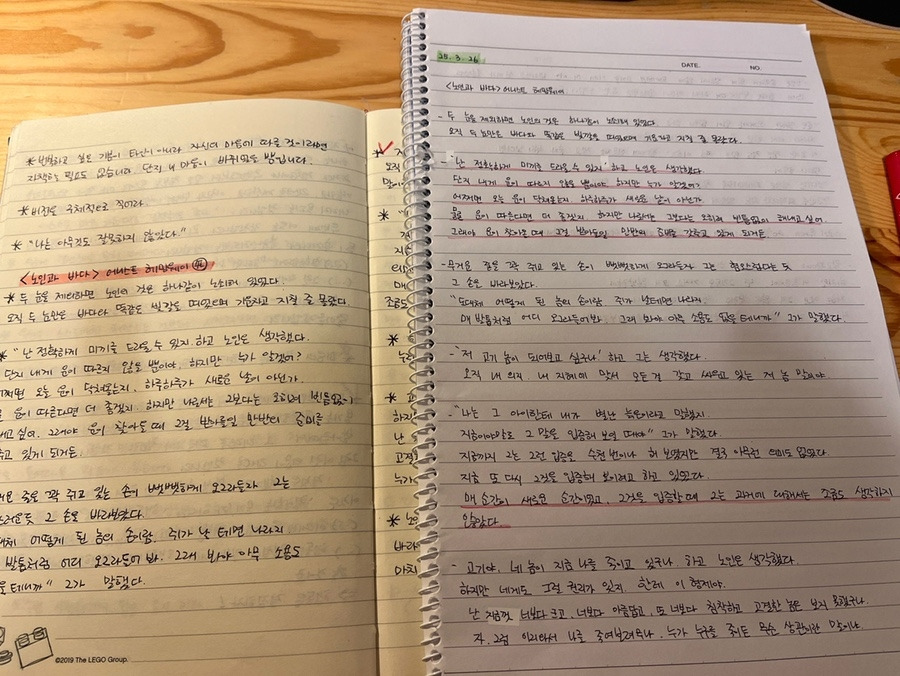 * 변화하고 싶은 기분이 타인이 아니라 자신의 마음에 따를 것이라면
자책할 필요도 없습니다. 단지 내 마음이 바뀌었을 뿐입니다.
* 비전을 구체적으로 적어라.
* "나는 아무것도 잘못하지 않았다."
<노인과 바다> 어니스트 헤밍웨이
* 두 눈을 제외하면 노인의 것은 하나같이 노쇠해 있었다.
오직 두 눈만은 바다와 똑같은 빛깔을 띠었으며 기운차고 지칠 줄 몰랐다.
* "난 정확하게 미끼를 드리울 수 있지. 하고 노인은 생각했다.
단지 내게 운이 따르지 않을 뿐이야. 하지만 누가 알겠어?
쩌면 오늘 운이 닥쳐올는지. 하루하루가 새로운 날이 아닌가.
운이 따른다면 더 좋겠지. 하지만 나로서는 그보다는 오히려 빈틈없이
내고 싶어. 그래야 운이 찾아올 때 그걸 받아들일 만반의 준비를
추고 있게 되거든.
거운 줄을 꽉 쥐고 있는 손이 뻣뻣하게 오그라들자 그는
스러운듯 그 손을 바라보았다.
대체 어떻게 된 놈의 손이람. 쥐가 날 테면 나라지
발톱처럼 어디 오그라들어 봐. 그래 봐야 아무 소용도
을 테니까" 그가 말했다.
©2019 The LEGO Group.
* 지
오직
많이
* "
단
지
매
조금도
*
하지
난
고결
누가
* 노
바라
마치
25. 3. 26
DATE. NO.
<노인과 바다> 어니스트 헤밍웨이
- 두 눈을 제외하면 노인의 것은 하나같이 노쇠해 있었다.
오직 두 눈만은 바다와 똑같은 빛깔을 띠었으며 기운차고 지칠 줄 몰랐다.
- '난 정확하게 미끼를 드리울 수 있지' 하고 노인은 생각했다.
단지 내게 운이 따르지 않을 뿐이야. 하지만 누가 알겠어?
어쩌면 오늘 운이 닥쳐올는지. 하루하루가 새로운 날이 아닌가.
물론 운이 따른다면 더 좋겠지. 하지만 나로서는 그보다는 오히려 빈틈없이 해내고 싶어.
그래야 운이 찾아올 때 그걸 받아들일 만반의 준비를 갖추고 있게 되거든.
- 무거운 줄을 꽉 쥐고 있는 손이 뻣뻣하게 오그라들자 그는 혐오스럽다는 듯
그 손을 바라보았다.
"도대체 어떻게 된 놈의 손이람. 쥐가 날 테면 나라지.
매 발톱처럼 어디 오그라들어봐. 그래 봐야 아무 소용도 없을 테니까" 그가 말했다.
- '저 고기 놈이 되어보고 싶구나' 하고 그는 생각했다.
오직 내 의지, 내 지혜에 맞서 모든 걸 갖고 싸우고 있는 저 놈 말이야
- "나는 그 아이한테 내가 별난 늙은이라고 말했지.
지금이야말로 그 말을 입증해 보일 때야" 그가 말했다.
지금까지 그는 그런 입증을 수천 번이나 해 보였지만 결국 아무런 의미도 없었다.
지금 또 다시 그것을 입증해 보이려고 하고 있었다.
매 순간이 새로운 순간이었고, 그것을 입증할 때 그는 과거에 대해서는 조금도 생각하지
않았다.
- 고기야, 네 놈이 지금 나를 죽이고 있구나. 하고 노인은 생각했다.
하지만 네게도 그럴 권리가 있지. 한데 이 형제야.
난 지금껏 너보다 크고, 너보다 아름답고, 또 너보다 침착하고 고결한 놈은 보지 못했구나.
자, 그럼 이리와서 나를 죽여보려무나, 누가 누구를 죽이든 무슨 상관이란 말이냐.